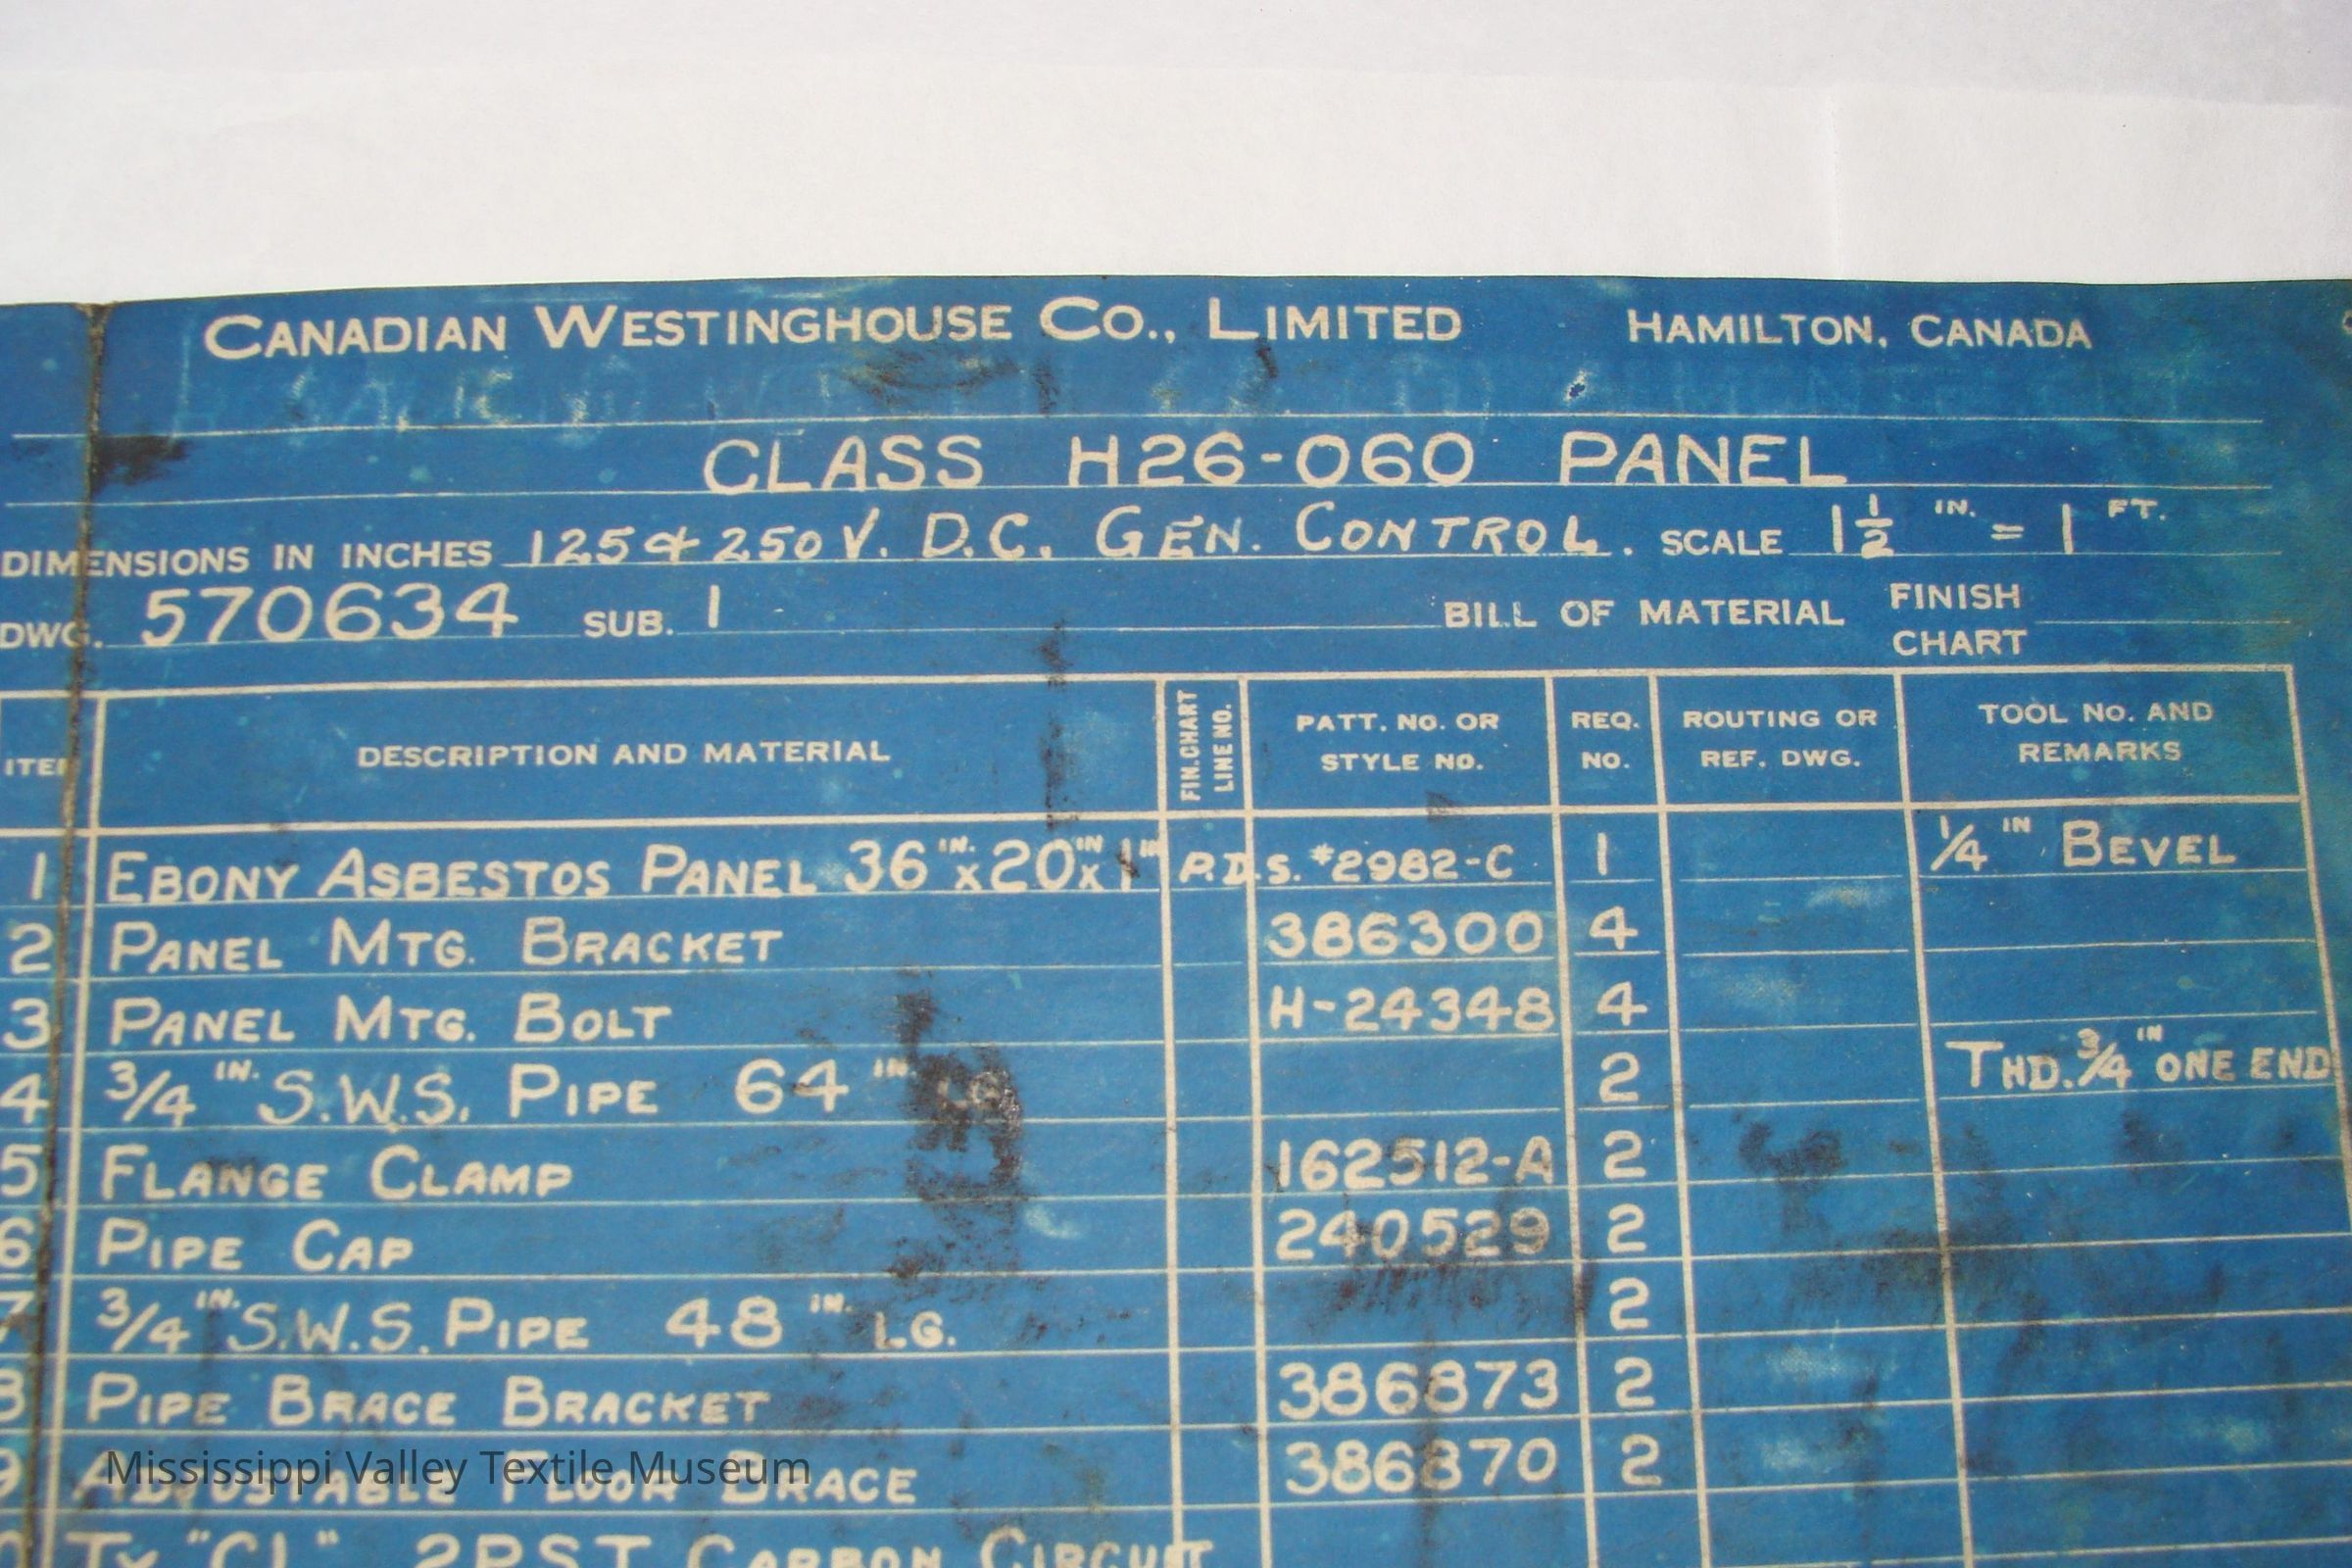 CANADIAN WESTINGHOUSE CO., LIMITED HAMILTON, CANADA
CLASS H26-060 PANEL
DIMENSIONS IN INCHES 125 & 250 V. D.C. GEN. CONTROL. SCALE 1 1/2 IN. = 1 FT.
DWG. 570634 SUB. 1 BILL OF MATERIAL FINISH CHART
ITEM DESCRIPTION AND MATERIAL FIN. CHART LINE NO. PATT. NO. OR STYLE NO. REQ. NO. ROUTING OR REF. DWG. TOOL NO. AND REMARKS
1 EBONY ASBESTOS PANEL 36"IN. x 20"IN x 1"IN P.D.S. #2982-C 1 1/4"IN BEVEL
2 PANEL MTG. BRACKET 386300 4
3 PANEL MTG. BOLT H-24348 4
4 3/4"IN. S.W.S. PIPE 64"IN. LG. 2 THD. 3/4"IN ONE END
5 FLANGE CLAMP 162512-A 2
6 PIPE CAP 240529 2
7 3/4"IN. S.W.S. PIPE 48"IN. LG. 2
8 PIPE BRACE BRACKET 386873 2
9 ADJUSTABLE FLOOR BRACE 386870 2
Mississippi Valley Textile Museum
TY "CL" 2PST CARBON CIRCUIT